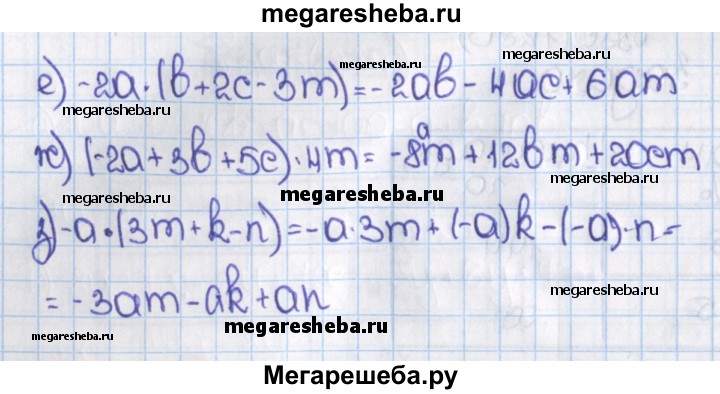 megaresheba.ru
megaresheba.ru
megaresheba.ru
е) -2a·(b+2c-3m)=-2ab-4ac+6am
megaresheba.ru
megaresheba.ru
ж) (-2a+3b+5c)·4m=-8am+12bm+20cm
megaresheba.ru
megaresheba.ru
з) -a·(3m+k-n)=-a·3m+(-a)k-(-a)·n=
=-3am-ak+an
megaresheba.ru
megaresheba.ru
megaresheba.ru
Мегарешеба.ру